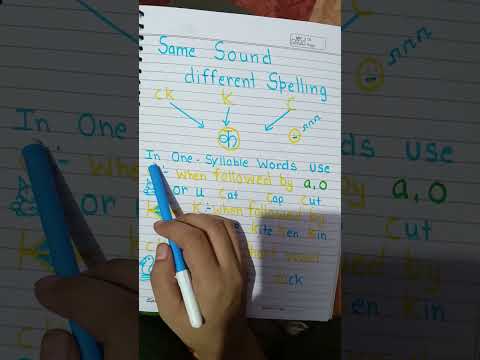 Same Sound
different Spelling
ck K C
क
In One-Syllable Words use
:- When followed by a,o
or u Cat Cap Cut
K :- when followed by
Kite Ken Kin
short vowel
ck